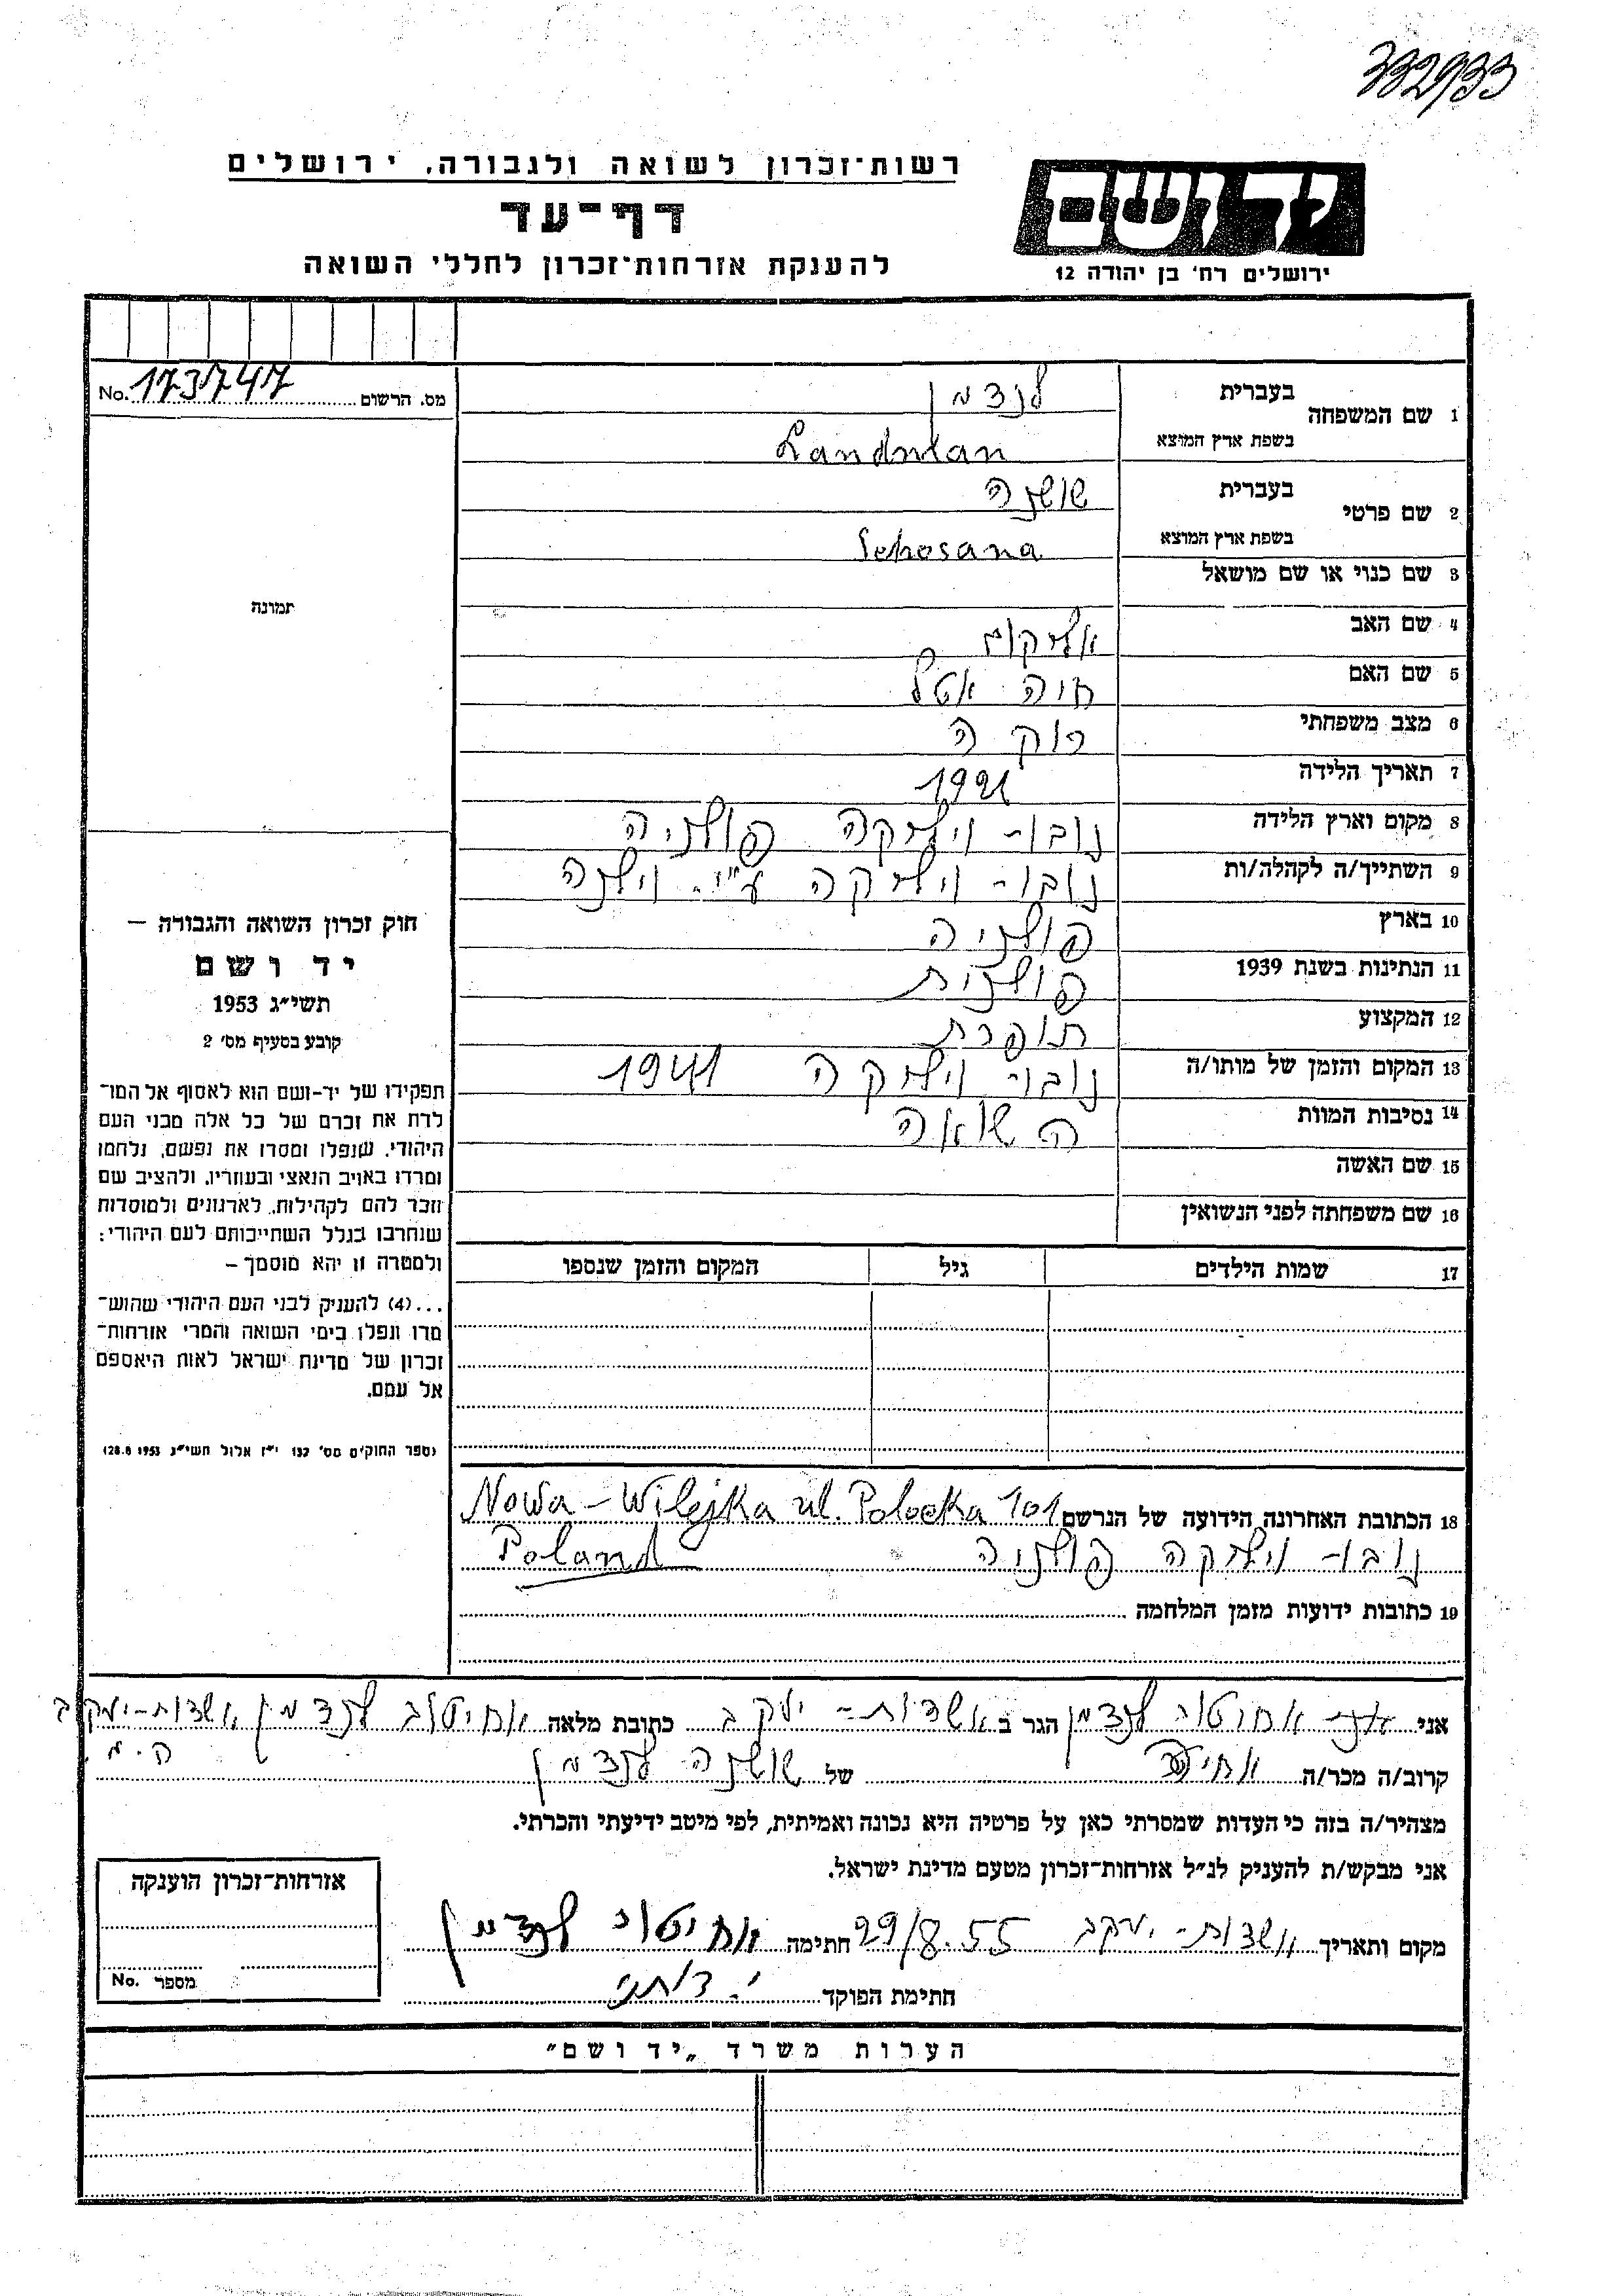 332933
רשות־זכרון לשואה ולגבורה, ירושלים
דף־עד
להענקת אזרחות־זכרון לחללי השואה
יד ושם
ירושלים רח' בן יהודה 12
מס. הרשום No. 173747
תמונה
חוק זכרון השואה והגבורה –
יד ושם
תשי״ג 1953
קובע בסעיף מס' 2
תפקידו של יד-ושם הוא לאסוף אל המו־
לדת את זכרם של כל אלה מבני העם
היהודי, שנפלו ומסרו את נפשם, נלחמו
ומרדו באויב הנאצי ובעוזריו, ולהציב שם
וזכר להם לקהילות, לארגונים ולמוסדות
שנחרבו בגלל השתייכותם לעם היהודי;
ולמטרה זו יהא מוסמך –
...(4) להעניק לבני העם היהודי שהוש־
מדו ונפלו בימי השואה והמרי אזרחות־
זכרון של מדינת ישראל לאות היאספם
אל עמם.
(ספר החוקים מס' 132 י״ז אלול תשי״ג 28.8.1953)
1 שם המשפחה בעברית לנדמן
בשפת ארץ המוצא Landman
2 שם פרטי בעברית שושנה
בשפת ארץ המוצא Schosana
3 שם כנוי או שם מושאל
4 שם האב אליקום
5 שם האם חיה אטל
6 מצב משפחתי רוקה
7 תאריך הלידה 1921
8 מקום וארץ הלידה נובו־וילקה פולניה
9 השתייך/ה לקהלה/ות נובו־וילקה ע"י-וילנה
10 בארץ פולניה
11 הנתינות בשנת 1939 פולנית
12 המקצוע תופרת
13 המקום והזמן של מותו/ה נובו־וילקה 1941
14 נסיבות המוות השואה
15 שם האשה
16 שם משפחתה לפני הנשואין
17 שמות הילדים גיל המקום והזמן שנספו
18 הכתובת האחרונה הידועה של הנרשם Nowa-Wilejka ul. Polocka 101
נובו־וילקה פולניה Poland
19 כתובות ידועות מזמן המלחמה
אני אני אחיטוב לנדמן הגר ב אשדות־יעקב כתובת מלאה אחיטוב לנדמן אשדות־יעקב
קרוב/ה מכר/ה של שושנה לנדמן
מצהיר/ה בזה כי העדות שמסרתי כאן על פרטיה היא נכונה ואמיתית, לפי מיטב ידיעתי והכרתי.
אני מבקש/ת להעניק לנ״ל אזרחות־זכרון מטעם מדינת ישראל.
מקום ותאריך אשדות־יעקב 29/8.55 חתימה אחיטוב לנדמן
חתימת הפוקד
אזרחות־זכרון הוענקה
מספר No.
הערות משרד „יד ושם״